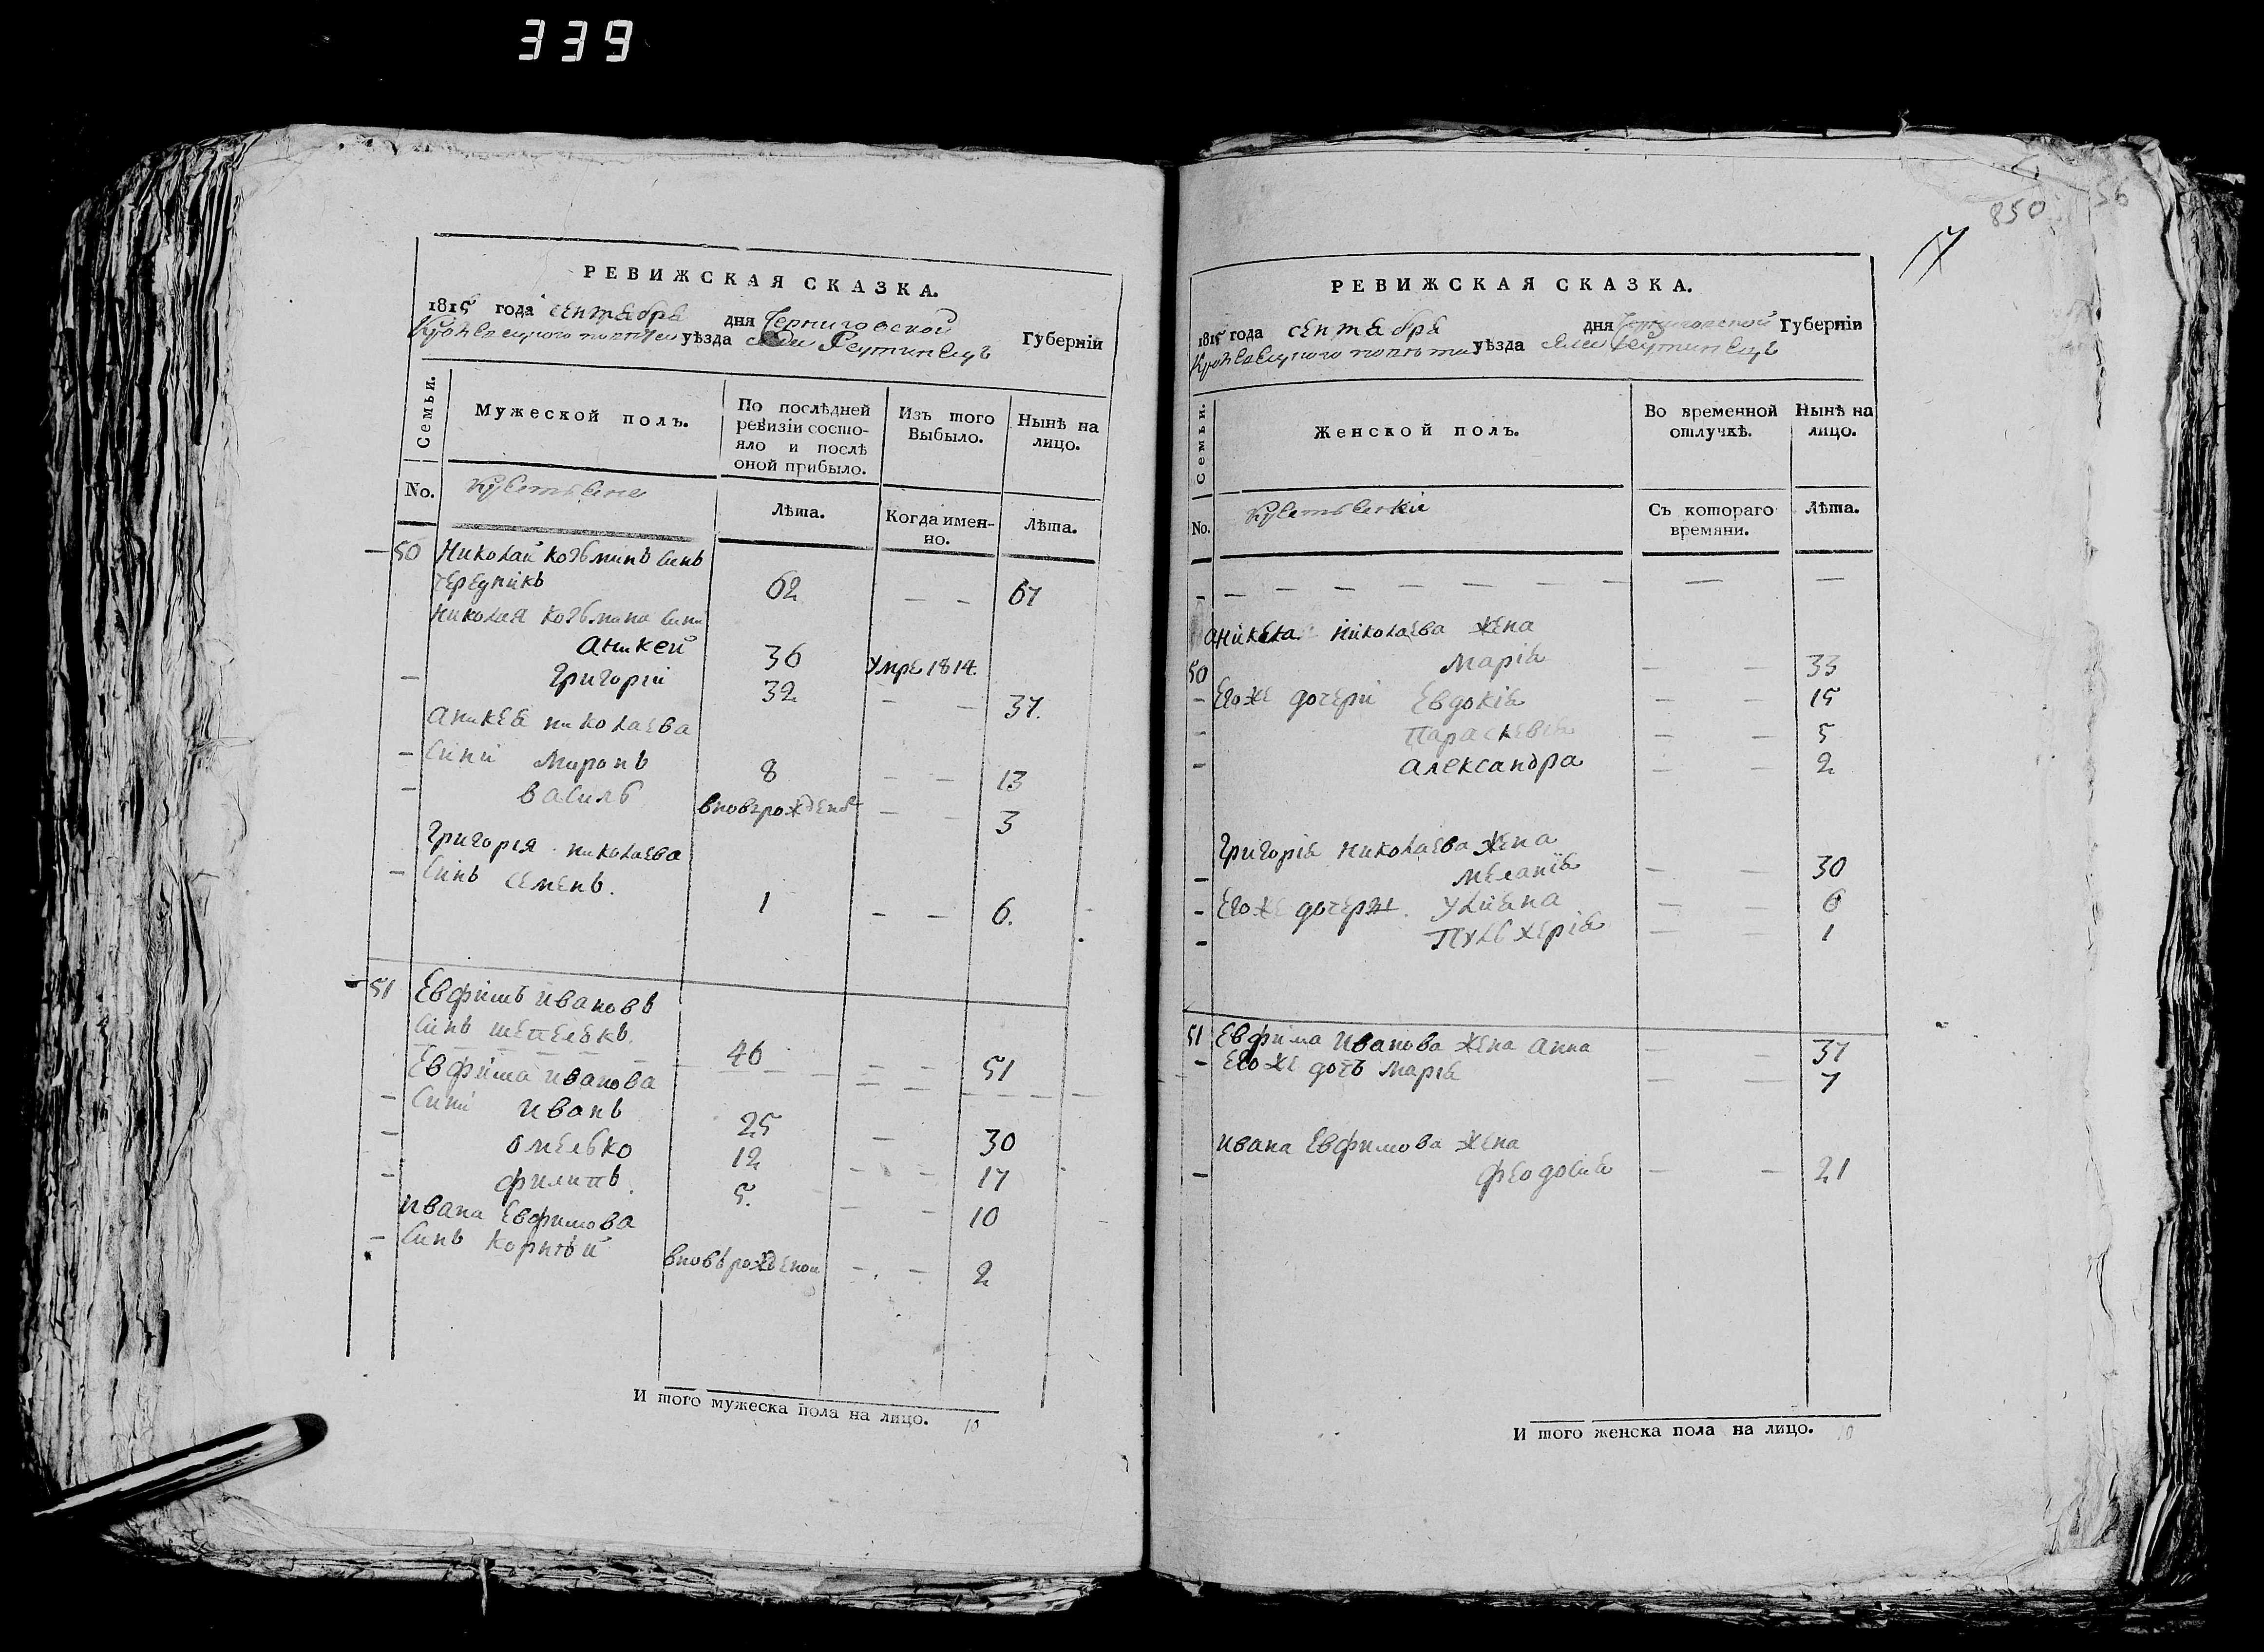 339
РЕВИЖСКАЯ СКАЗКА.
1815 года сентября дня Черниговской Губерніи
Кролевецкого повѣта уѣзда села Реутинецъ
Семьи.
Мужеской полъ.
По послѣдней ревизіи состо-
яло и послѣ
оной прибыло.
Изъ того
Выбыло.
Нынѣ на
лицо.
No.
Лѣта.
Когда имен-
но.
Лѣта.
50 Николай козьминъ синъ
чередникъ 62 — — 67
Николая козьмина сини
аникей 36 умре 1814.
— григорій 32 — — 37.
аникея николаева
— сини миронъ 8 — — 13
— василь вновърожденъ — — 3
григорія николаева
— синъ семенъ. 1 — — 6.
51 Евфимъ ивановъ
синъ шепелекъ. 46 — — 51
Евфима иванова
— сини иванъ 25 — 30
— омелько 12 — — 17
— филипъ. 5. — — 10
ивана Евфимова
— синъ корнѣй вновърожденой — — 2
И того мужеска пола на лицо. 10
850
56
17
РЕВИЖСКАЯ СКАЗКА.
1815 года сентября дня Черниговской Губерніи
Кролевецкого повѣта уѣзда села Реутинецъ
Семьи.
Женской полъ.
Во временной
отлучкѣ.
Нынѣ на
лицо.
No.
Съ котораго
времяни.
Лѣта.
аникея николаева жена
50 марія — — 33
— Егоже дочери Евдокія — — 15
— Параскевія — — 5
— александра — — 2
григорія николаева жена
— меланія — — 30
— Егоже дочери. уліяна — — 6
— Пульхерія — — 1
51 Евфима иванова жена анна — — 37
— Егоже дочъ марія — — 7
ивана Евфимова жена
— феодосия — — 21
И того женска пола на лицо. 10